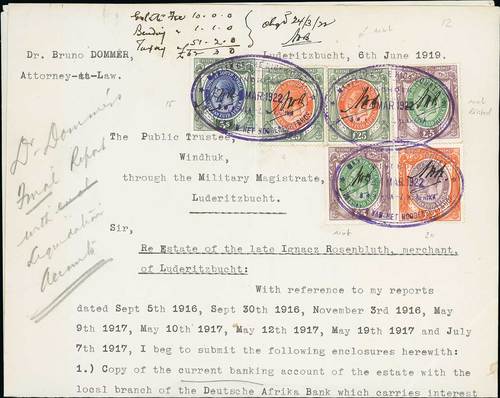 10 . 0 . 0
1 . 1 . 0
51 . 2 . 0
24/3/22
12
Dr. Bruno DOMMÉR,
Luderitzbucht, 6th June 1919.
Attorney-at-Law.
15
MAR 1922
MAR 1922
£25
£25
£5
The Public Trustee,
Windhuk,
through the Military Magistrate,
Luderitzbucht.
MAR 1922
Dr Dommér's
Final Report
with
Liquidation
Accounts
Sir,
Re Estate of the late Ignacz Rosenbluth, merchant,
of Luderitzbucht:
With reference to my reports
dated Sept 5th 1916, Sept 30th 1916, November 3rd 1916, May
9th 1917, May 10th 1917, May 12th 1917, May 19th 1917 and July
7th 1917, I beg to submit the following enclosures herewith:
1.) Copy of the current banking account of the estate with the
local branch of the Deutsche Afrika Bank which carries interest